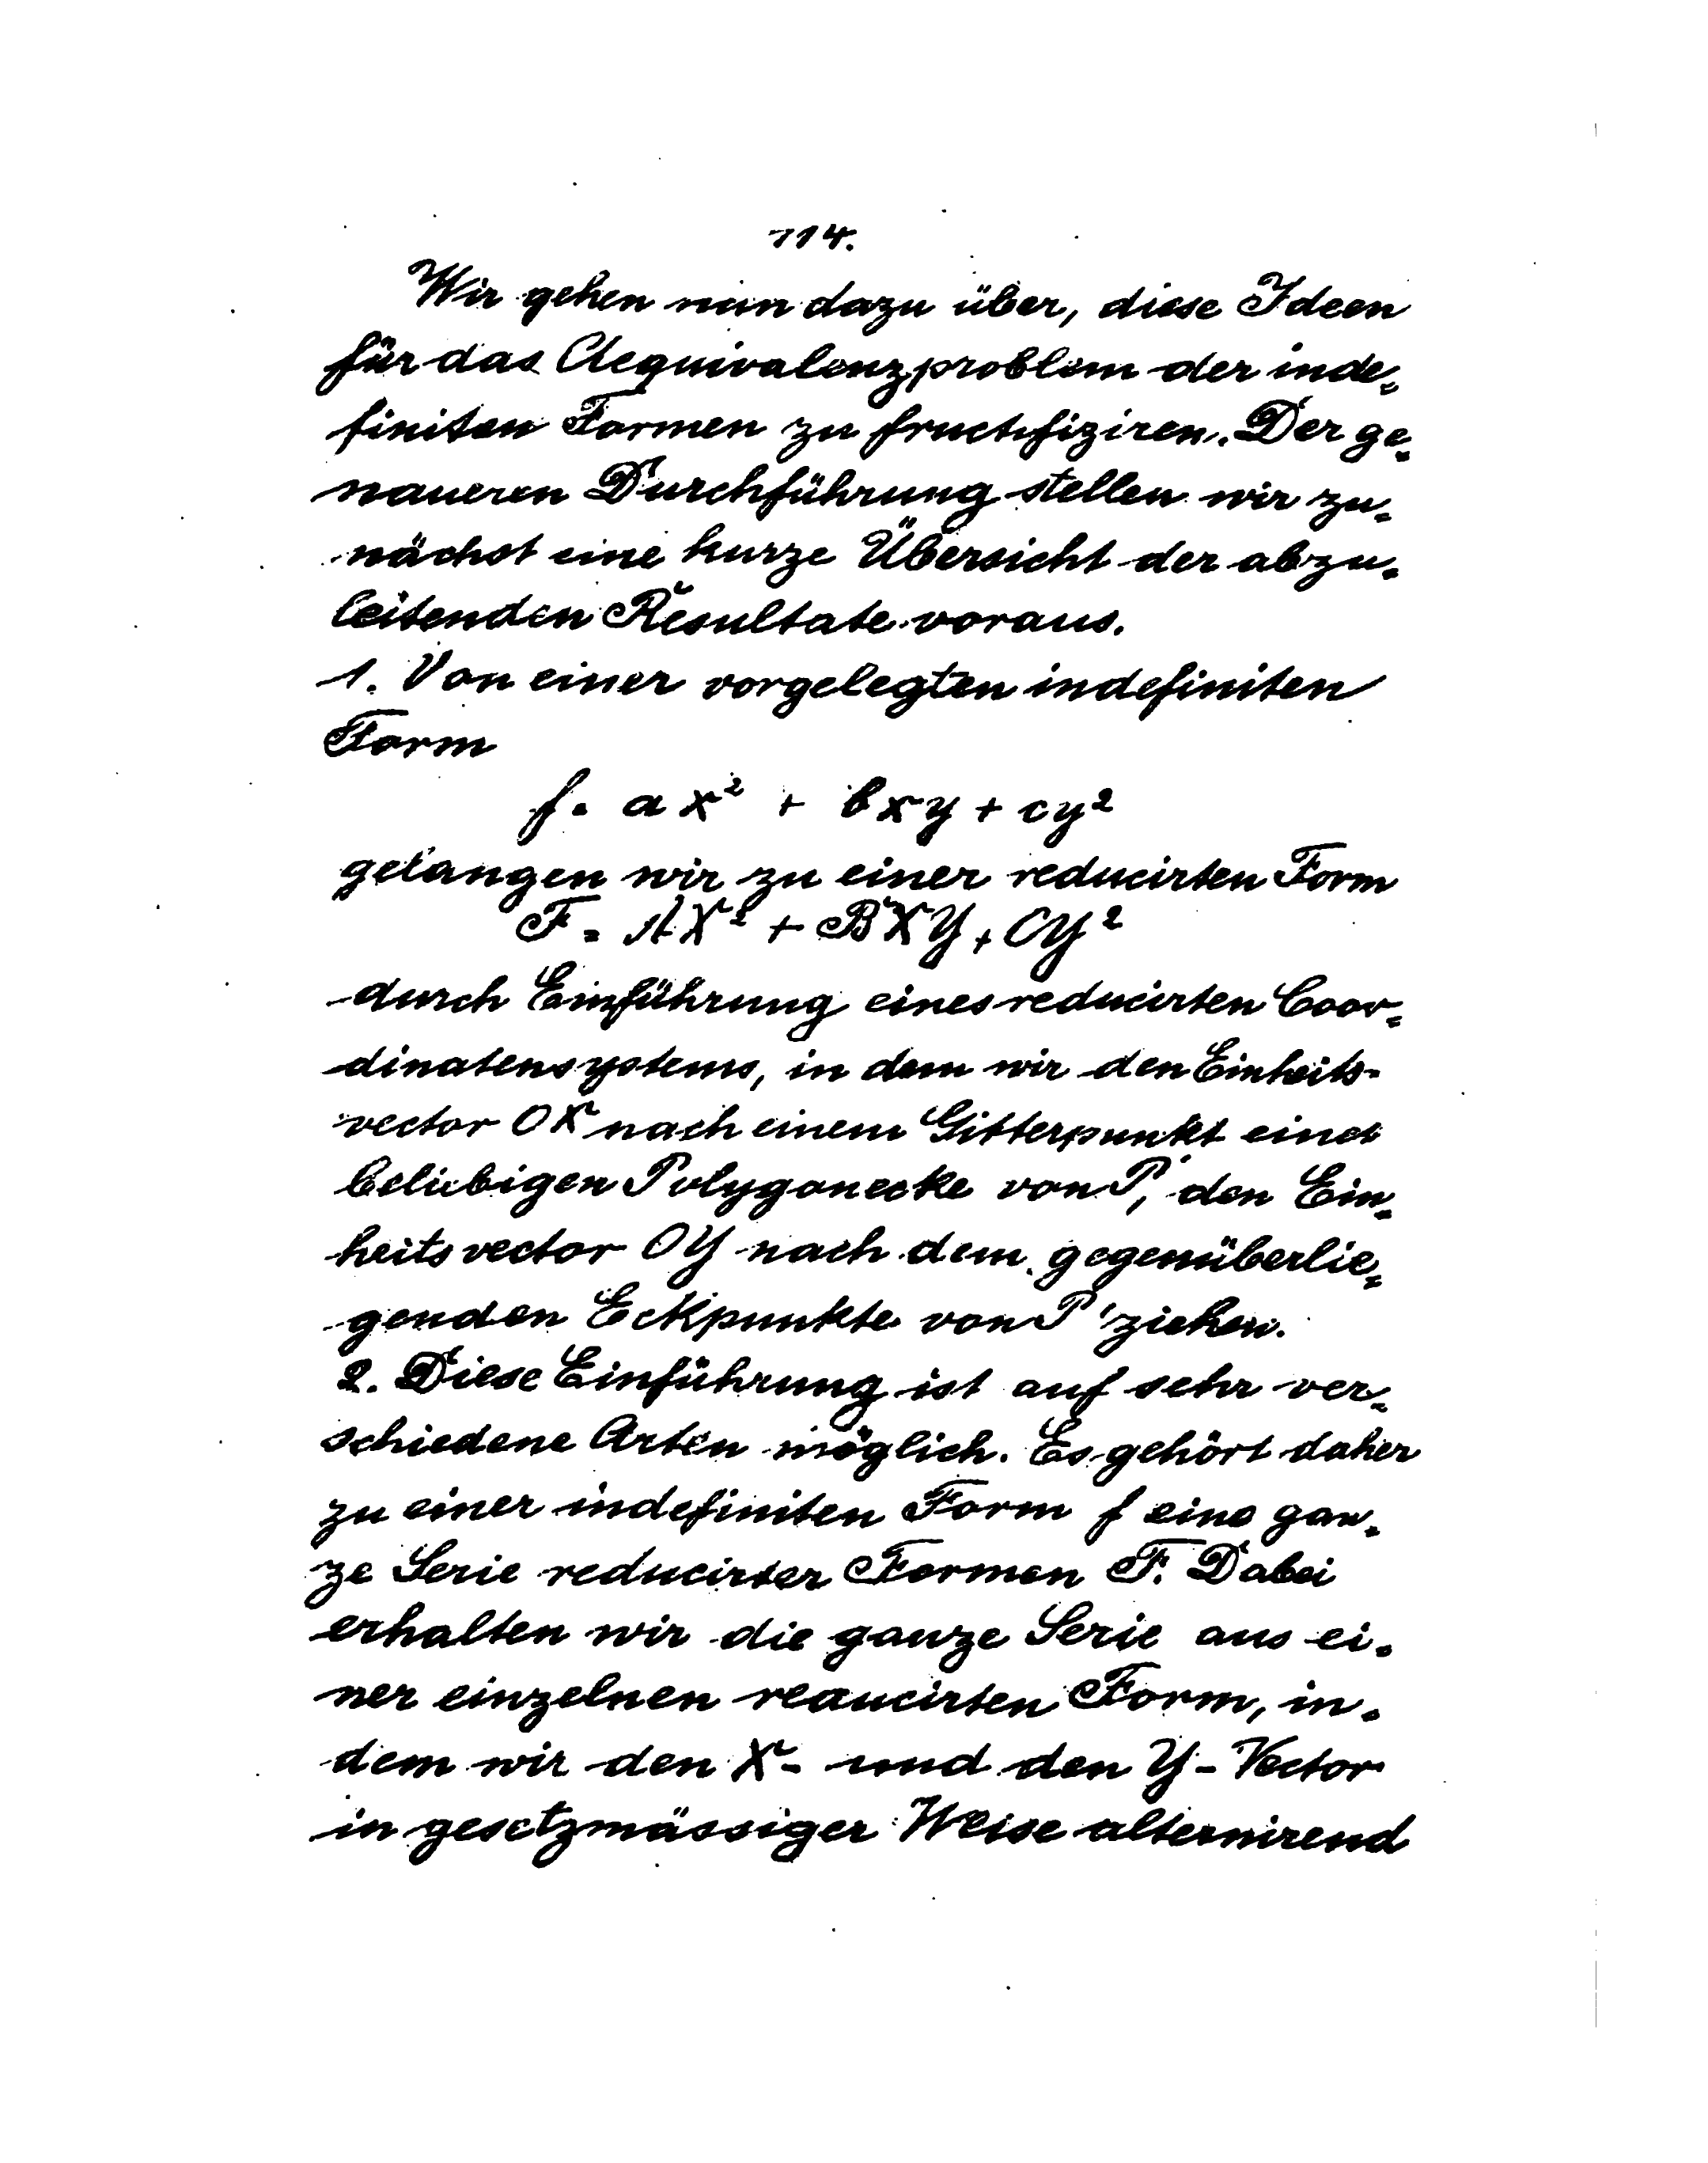 114.
Wir gehen nun dazu über, diese Ideen
für das Aequivalenzproblem der inde=
finiten Formen zu fructifiziren. Der ge=
naueren Durchführung stellen wir zu=
nächst eine kurze Übersicht der abzu=
leitenden Resultate voraus.
1. Von einer vorgelegten indefiniten
Form
f = ax² + bxy + cy²
gelangen wir zu einer reducirten Form
F = AX² + BXY + CY²
durch Einführung eines reducirten Coor=
dinatensystems, in dem wir den Einheits=
vector OX nach einem Gitterpunkt einer
beliebigen Polygonecke von P, den Ein=
heitsvector OY nach dem gegenüberlie=
genden Eckpunkte von P' ziehen.
2. Diese Einführung ist auf sehr ver=
schiedene Arten möglich. Es gehört daher
zu einer indefiniten Form f eine gan=
ze Serie reducirter Formen F. Dabei
erhalten wir die ganze Serie aus ei=
ner einzelnen reducirten Form, in=
dem wir den X- und den Y-Vector
in gesetzmässiger Weise alternirend